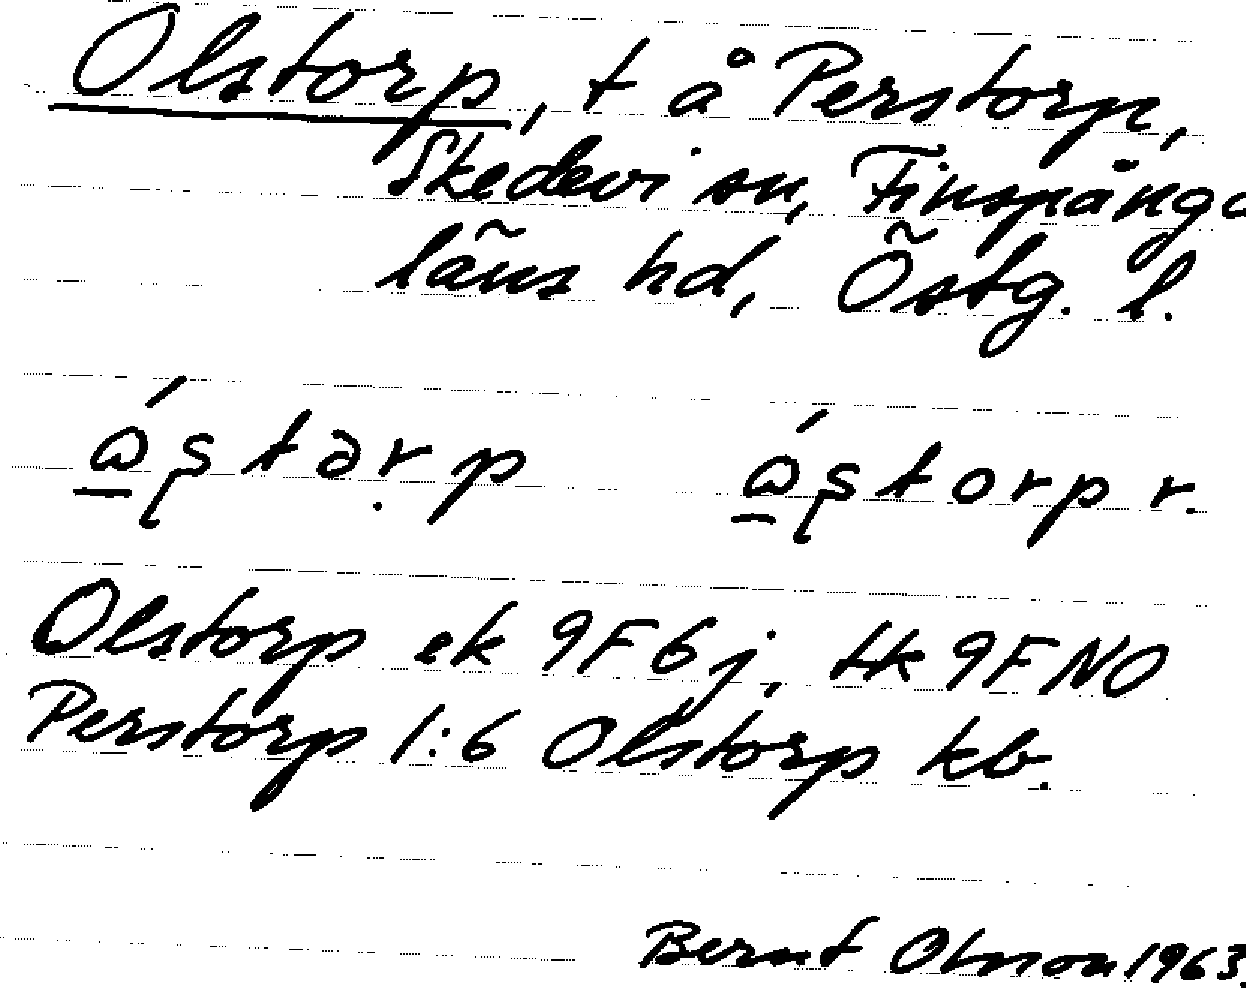 Olstorp, t å Perstorp,
Skedevi sn, Finspånga
läns hd, Östg. l.
ą́ʂtəṛp ą́ʂtorp r.
Olstorp ek 9F6j, Hk 9F NO
Perstorp 1:6 Olstorp kb.
Bernt Olsson 1963.